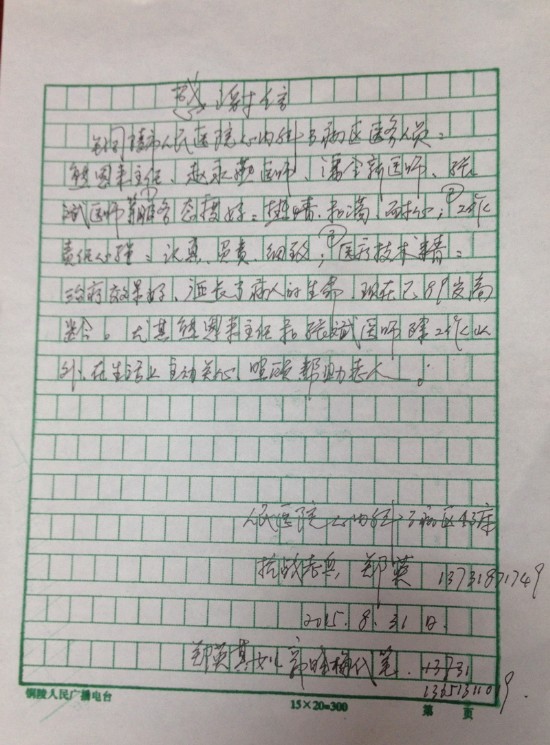 感谢信
人民医院心内科3病区医务人员：
熊恩来主任、赵永勤医师、潘全新医师、张
斌医师①服务态度好：热情、和蔼、耐心；②工作
责任心强：认真、负责、细致；③医疗技术精：
治疗效果好、延长了病人的生命，现在已89岁高
龄。尤其熊恩来主任和张斌医师除工作以
外，在生活上主动关心、照顾帮助老人。
人民医院心内科3病区43床
抗战老兵 郑英 13731871749
2015.8.31日
郑英其女儿 代笔.
铜陵人民广播电台 15×20=300 第 页